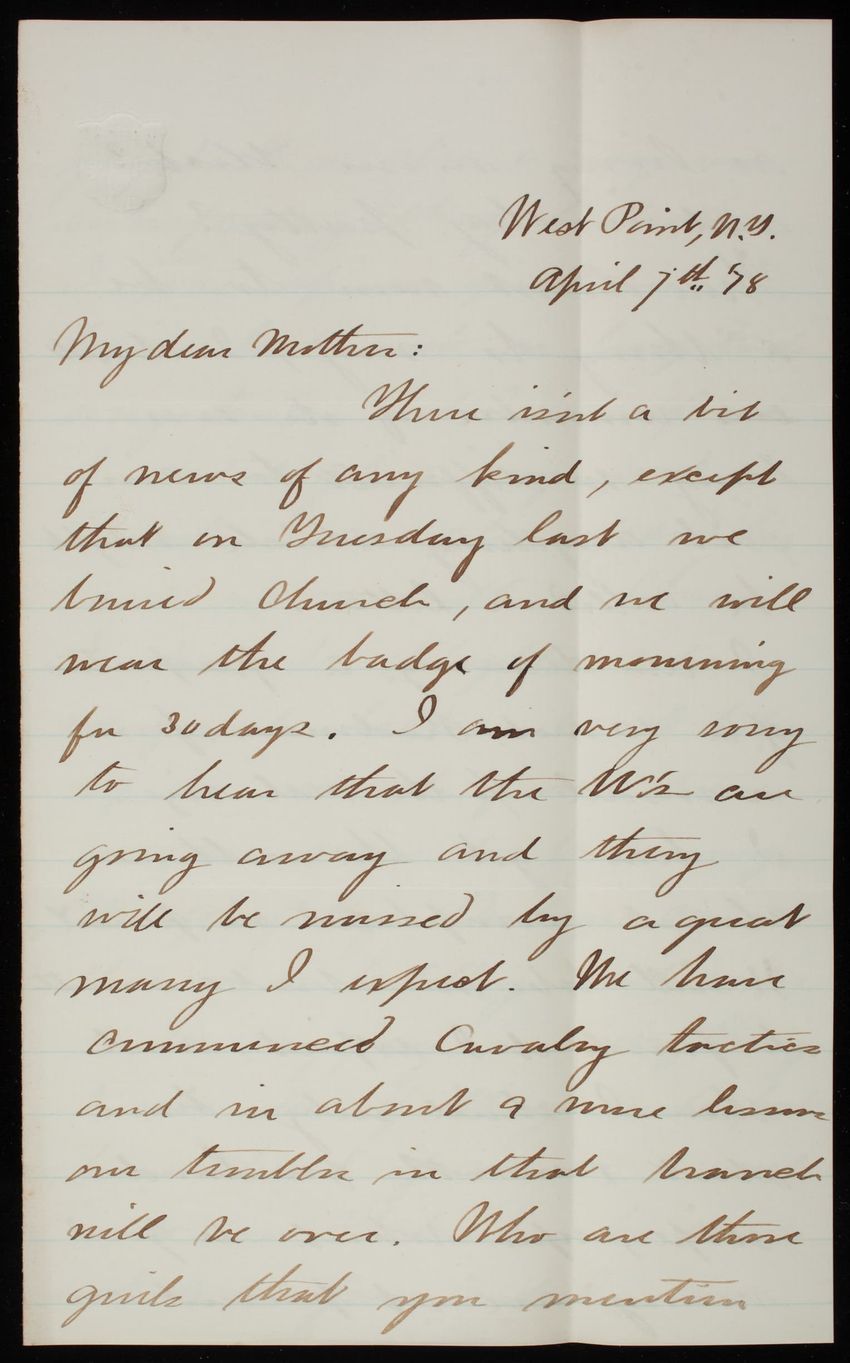 West Point, N.Y.
April 7th '78
My dear Mother:
There isn't a bit
of news of any kind, except
that on Tuesday last we
buried Church, and we will
wear the badge of mourning
for 30 days. I am very sorry
to hear that the W's are
going away and they
will be missed by a great
many I expect. We have
commenced Cavalry tactics
and in about 9 more lessons
our troubles in that branch
will be over. Who are those
girls that you mention